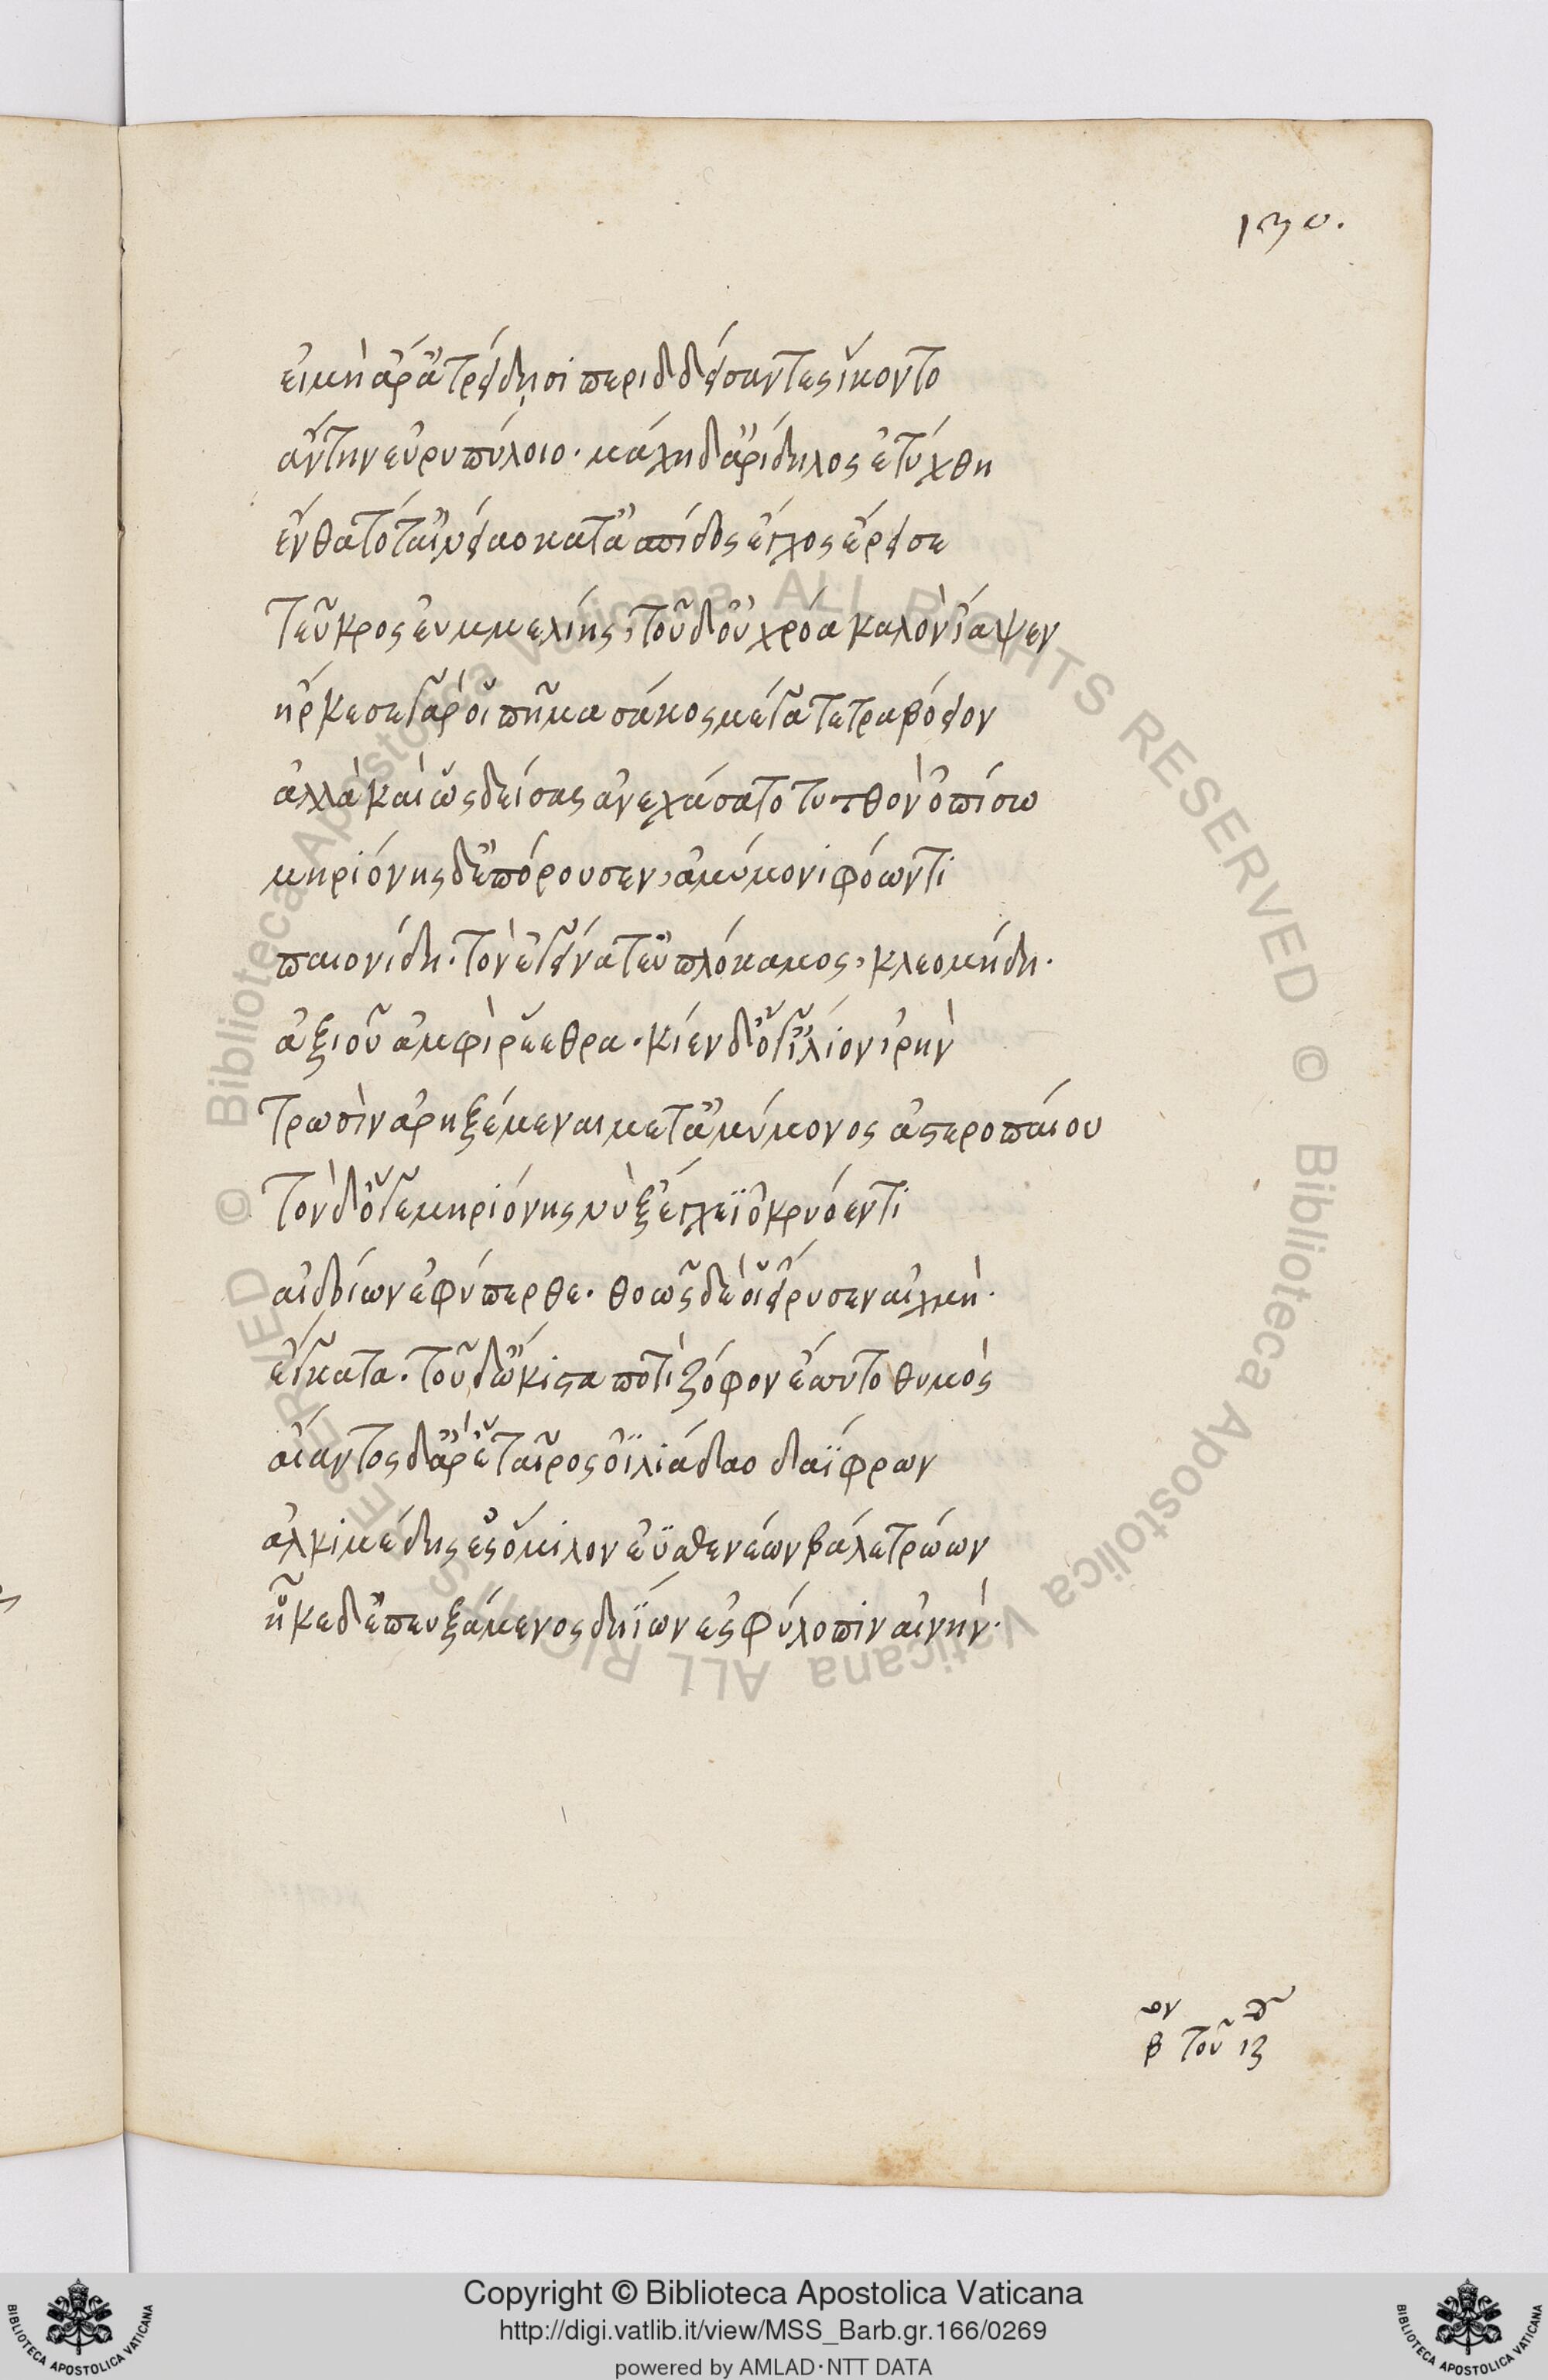 130.
εἰ μὴ ἄρ' ἀτρείδῃσι περιδδείσαντες ἵκοντο
ἄντην εὐρυπύλοιο· μάχη δ' ἀρίδηλος ἐτύχθη
ἔνθα τότ' αἰνείαο κατ' ἀσπίδος ἔγχος ἔρεισε
τεῦκρος ἐυμμελίης, τοῦ δ' οὐ χρόα καλὸν ἴαψεν
ἤρκεσε γάρ οἱ πῆμα σάκος μέγα τετραβόειον
ἀλλὰ καὶ ὧς δείσας ἀνεχάσατο τυτθὸν ὀπίσω
μηριόνης δ' ἐπόρουσεν, ἀμύμονι φόωντι
παιονίδη· τὸν ἐγείνατ' εὐπλόκαμος, κλεομήδη·
ἀξιοῦ ἀμφὶ ῥέεθρα· κίεν δ' ὅγ' ἴλιον ἱρὴν
τρωσὶν ἀρηξέμεναι μετ' ἀμύμονος ἀστεροπαίου
τὸν δ' ὅγε μηριόνης νύξ' ἔγχεϊ ὀκρυόεντι
αἰδοίων ἐφύπερθε· θοῶς δέ οἱ εἴρυσεν αἰχμὴ·
ἔγκατα· τοῦ δ' ὤκιστα ποτὶ ζόφον ἔσσυτο θυμός
αἴαντος δ' ἄρ' ἑταῖρος ὀϊλιάδαο δαΐφρων
ἀλκιμέδης ἐς ὅμιλον ἐϋσθενέων βάλε τρώων
ἧκε δ' ἐπευξάμενος δηΐων ἐς φύλοπιν αἰνὴν·
β τοῦ ιζ
Copyright © Biblioteca Apostolica Vaticana
http://digi.vatlib.it/view/MSS_Barb.gr.166/0269
powered by AMLAD·NTT DATA